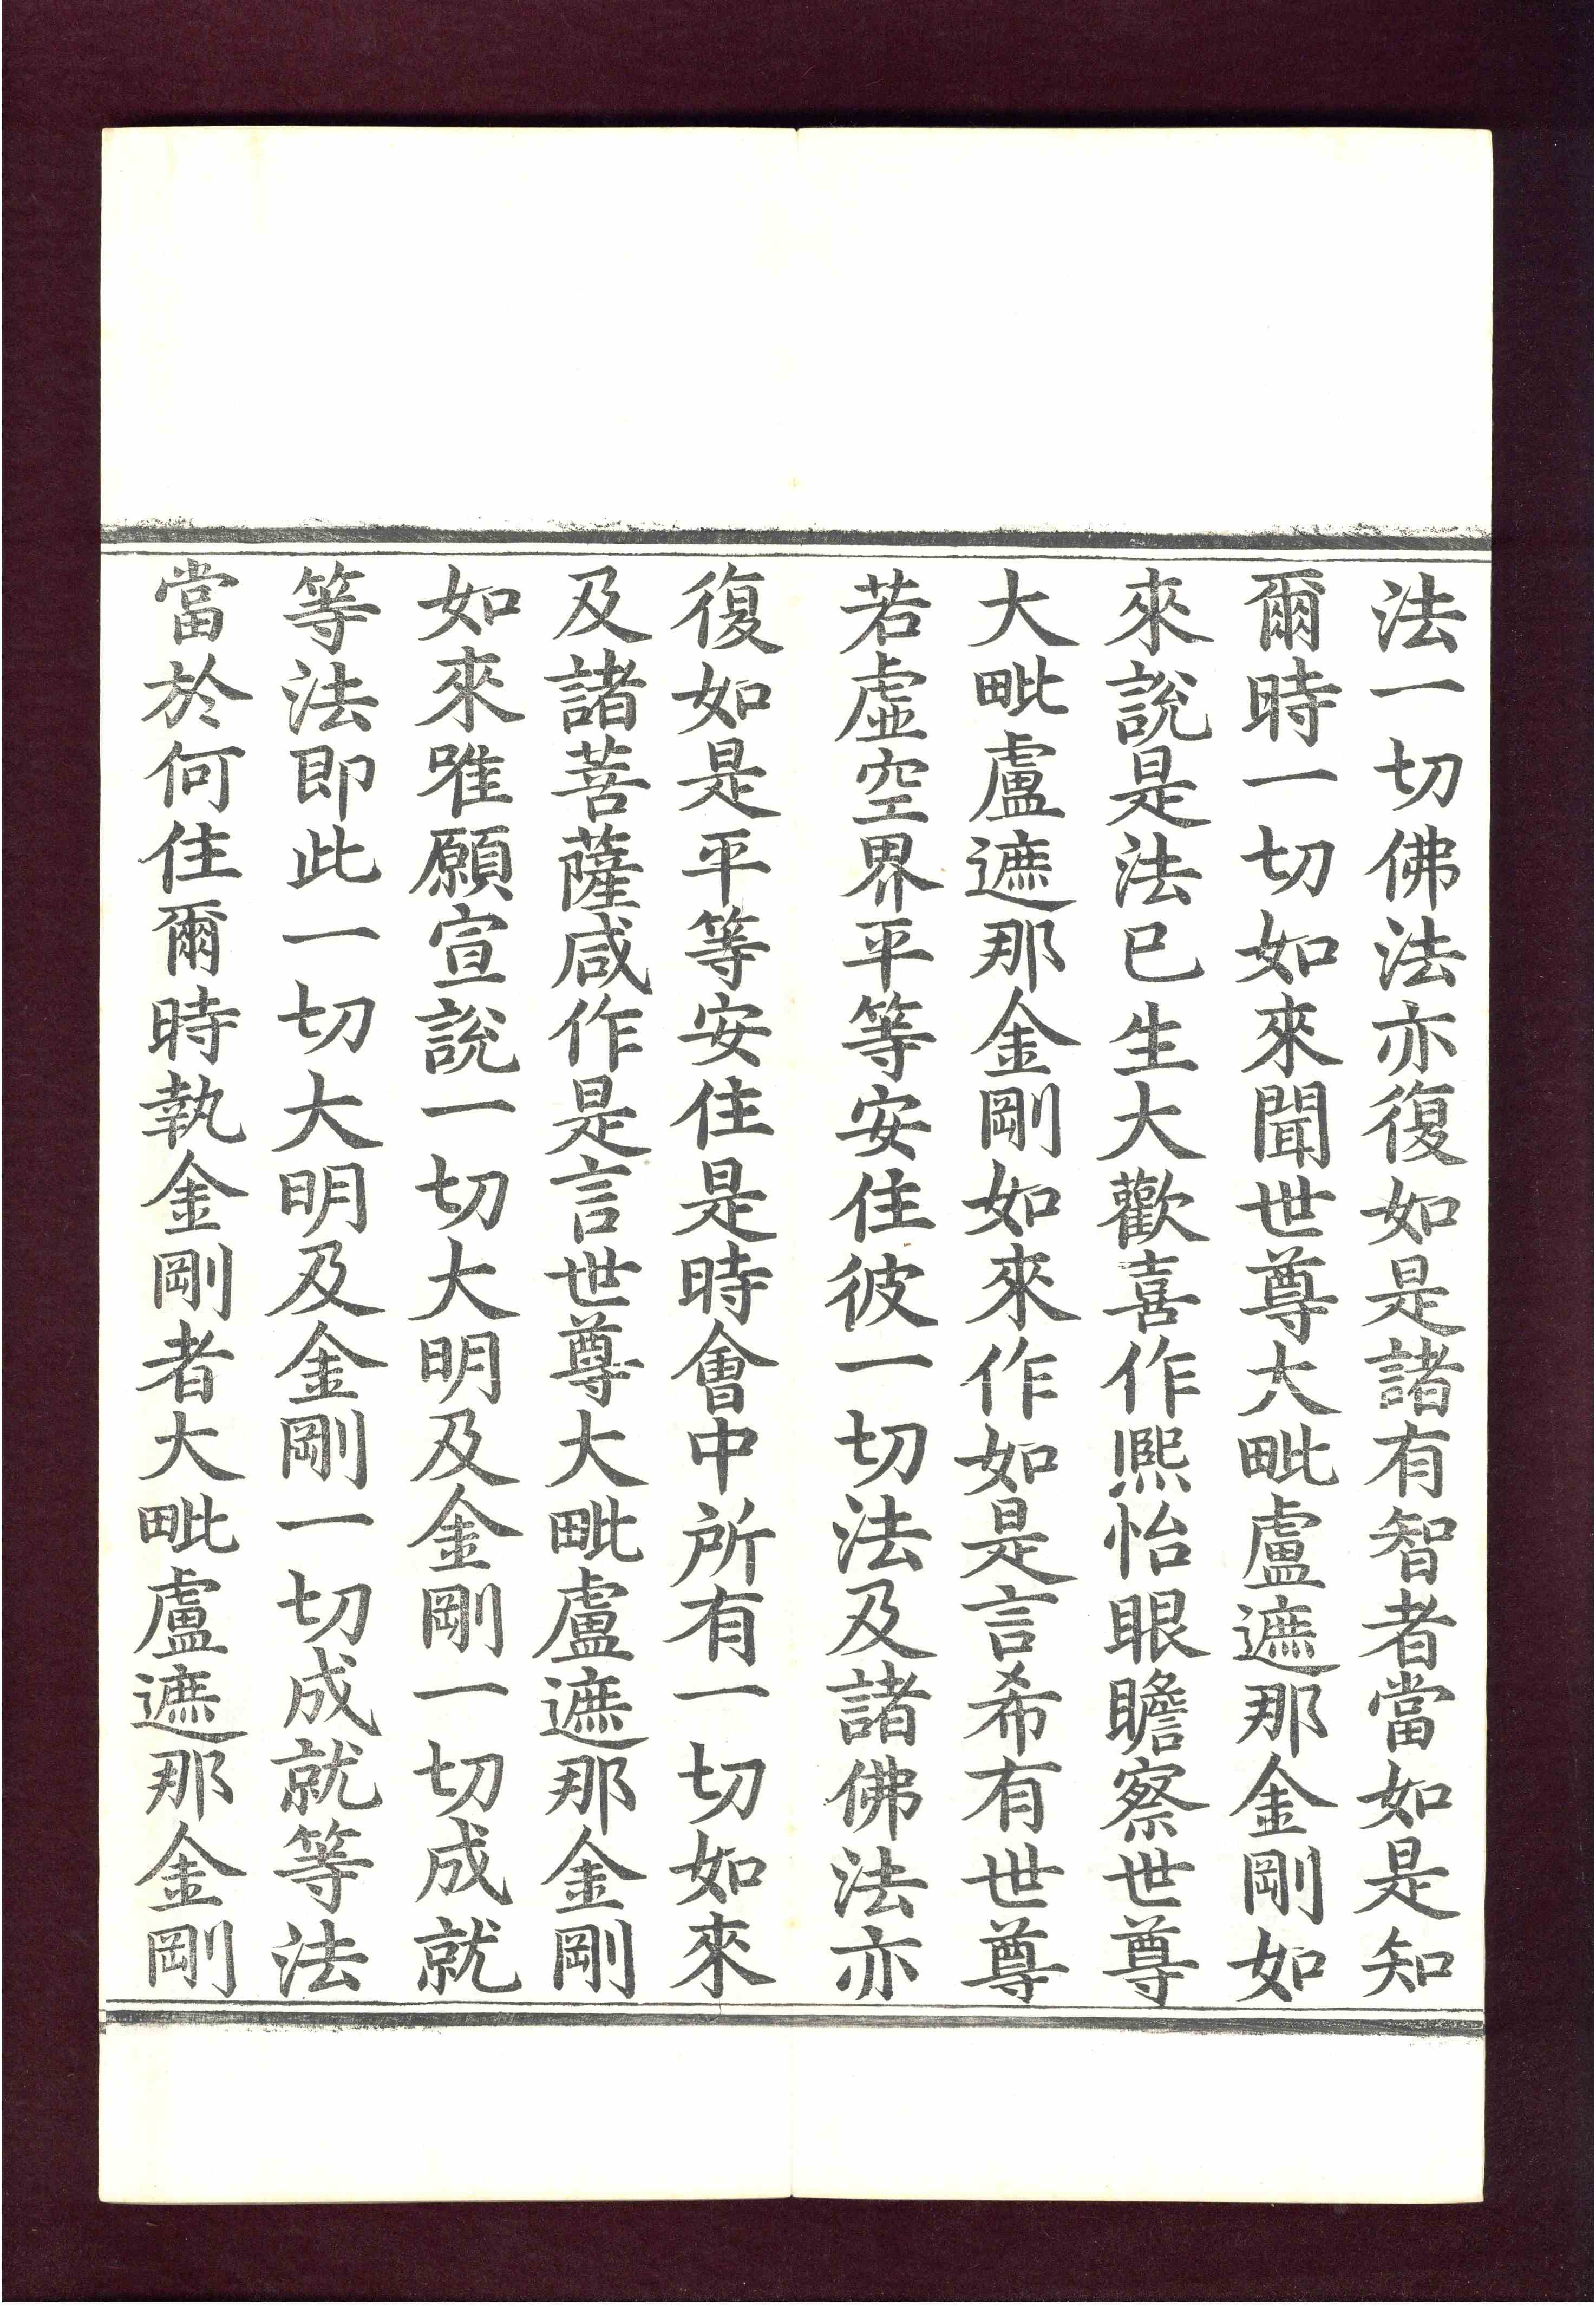 法一切佛法亦復如是諸有智者當如是知
爾時一切如來聞世尊大毗盧遮那金剛如
來說是法已生大歡喜作熈怡眼瞻察世尊
大毗盧遮那金剛如來作如是言希有世尊
若虛空界平等安住彼一切法及諸佛法亦
復如是平等安住是時會中所有一切如來
及諸菩薩咸作是言世尊大毗盧遮那金剛
如來唯願宣說一切大明及金剛一切成就
等法即此一切大明及金剛一切成就等法
當於何住爾時執金剛者大毗盧遮那金剛